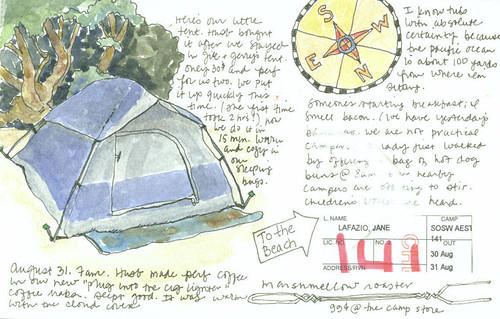 Here's our little
tent. Husb bought
it after we stayed
in Jer & Gerry's tent.
Only 30$ and perf
for us two. We put
it up quickly this
time. (One first time
took 2 hrs!) now
we do it in
15 min. Warm
and cozy in
our
sleeping
bags.
S
W
E
N
I know this
with absolute
certainty because
the pacific ocean
is about 100 yards
from where I'm
sitting.
Someone starting breakfast; I
smell bacon. (We have yesterday's
we are not practical
campers. A lady just walked
by offering bag of hot dog
buns @ 8am nearby
campers are to stir.
Children's heard.
To the
Beach
L. NAME
CAMP
LAFAZIO, JANE
SOSW AEST
LIC. NO.
NO.
141
OUT
30 Aug
ADDRESS/RVN
31 Aug
141
August 31. 7am. Husb made perf coffee
in our new "plug into the cig lighter"
coffee maker. Slept good. It was warm
with the cloud cover
Marshmellow roaster
99¢ @ the camp store